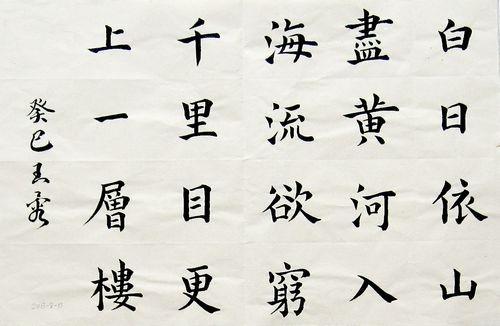 白日依山
盡黃河入
海流欲窮
千里目更
上一層樓
癸巳王秀